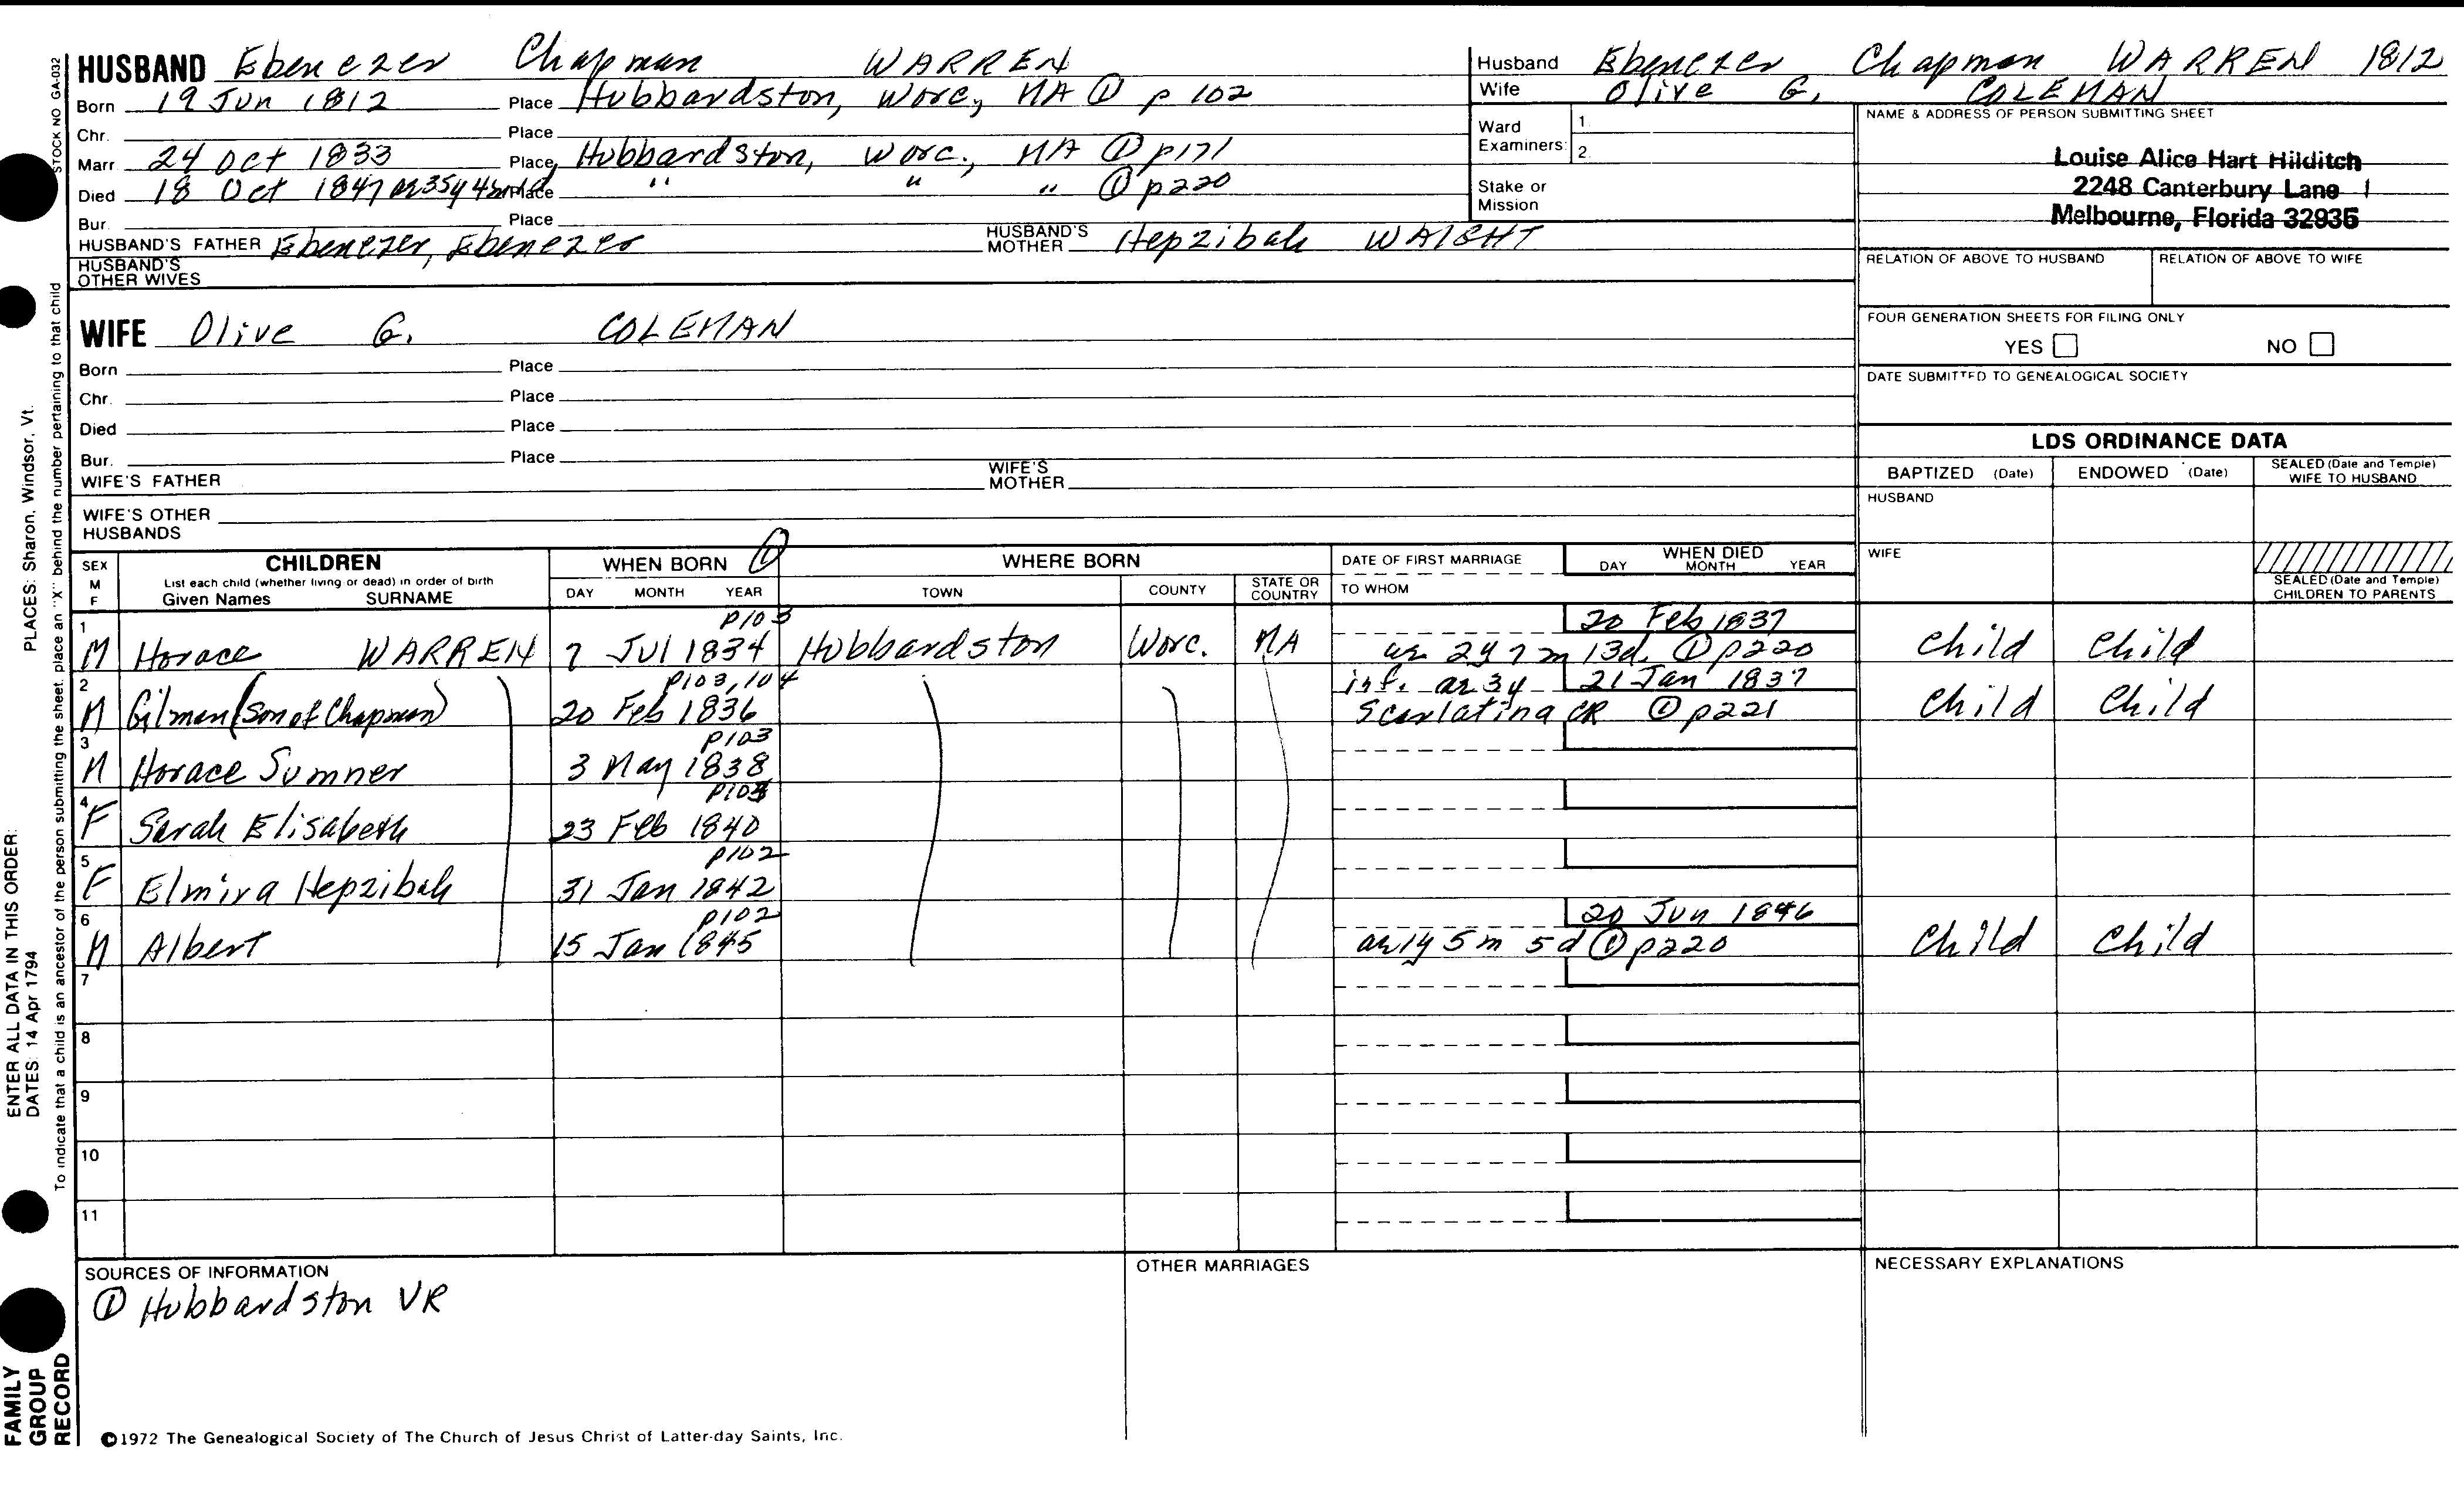 HUSBAND Ebenezer Chapman WARREN
Born 19 Jun 1812 Place Hubbardston, Worc, MA ① p 102
Chr. Place
Marr 24 Oct 1833 Place Hubbardston, Worc., MA ① p171
Died 18 Oct 1847 ae 35y 4m Place " " " ① p220
Bur. Place
HUSBAND'S FATHER Ebenezer, Ebenezer HUSBAND'S MOTHER Hepzibah WAIGHT
HUSBAND'S OTHER WIVES
Husband Ebenezer Chapman WARREN 1812
Wife Olive G. COLEMAN
Ward Examiners: 1. 2.
Stake or Mission
NAME & ADDRESS OF PERSON SUBMITTING SHEET
Louise Alice Hart Hilditch
2248 Canterbury Lane
Melbourne, Florida 32935
RELATION OF ABOVE TO HUSBAND RELATION OF ABOVE TO WIFE
FOUR GENERATION SHEETS FOR FILING ONLY
YES NO
DATE SUBMITTED TO GENEALOGICAL SOCIETY
WIFE Olive G. COLEMAN
Born Place
Chr. Place
Died Place
Bur. Place
WIFE'S FATHER WIFE'S MOTHER
WIFE'S OTHER HUSBANDS
LDS ORDINANCE DATA
BAPTIZED (Date) ENDOWED (Date) SEALED (Date and Temple) WIFE TO HUSBAND
HUSBAND
WIFE
SEALED (Date and Temple) CHILDREN TO PARENTS
SEX M F
CHILDREN
List each child (whether living or dead) in order of birth
Given Names SURNAME
WHEN BORN ①
DAY MONTH YEAR
WHERE BORN
TOWN COUNTY STATE OR COUNTRY
DATE OF FIRST MARRIAGE
TO WHOM
WHEN DIED
DAY MONTH YEAR
p103 20 Feb 1837
1 M Horace WARREN 7 Jul 1834 Hubbardston Worc. MA ae 2y 7m 13d. ① p220 Child Child
p103, 104 inf. ae 3y 21 Jan 1837
2 M Gilman (Son of Chapman) 20 Feb 1836 Scarlatina CR ① p221 Child Child
p103
3 M Horace Sumner 3 May 1838
4 F Sarah Elisabeth 23 Feb 1840
p102
5 F Elmira Hepzibah 31 Jan 1842
p102 20 Jun 1846
6 M Albert 15 Jan 1845 ae 1y 5m 5d ① p220 Child Child
7
8
9
10
11
SOURCES OF INFORMATION
① Hubbardston VR
OTHER MARRIAGES
NECESSARY EXPLANATIONS
©1972 The Genealogical Society of The Church of Jesus Christ of Latter-day Saints, Inc.
STOCK NO GA-032
To indicate that a child is an ancestor of the person submitting the sheet, place an "X" behind the number pertaining to that child
ENTER ALL DATA IN THIS ORDER:
DATES: 14 Apr 1794
PLACES: Sharon, Windsor, Vt.
FAMILY
GROUP
RECORD